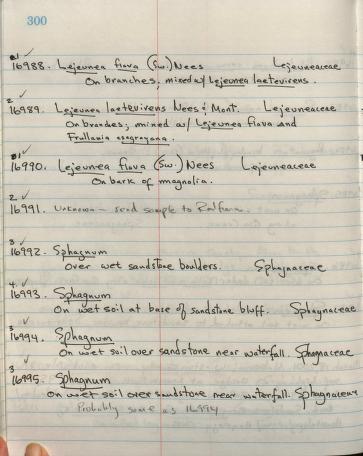 300
16988. Lejeunea flava (Sw.) Nees Lejeuneaceae
On branches, mixed w/ Lejeunea laetevirens.
2
16989. Lejeunea laetevirens Nees & Mont. Lejeuneaceae
On branches, mixed w/ Lejeunea flava and
Frullania asagrayana.
16990. Lejeunea flava (Sw.) Nees Lejeuneaceae
On bark of magnolia.
2
16991. Unknown - send sample to
3
16992. Sphagnum
Over wet sandstone boulders. Sphagnaceae
4
16993. Sphagnum
On wet soil at base of sandstone bluff. Sphagnaceae
3
16994. Sphagnum
On wet soil over sandstone near waterfall. Sphagnaceae
3
16995. Sphagnum
On wet soil over sandstone near waterfall. Sphagnaceae
Probably same as 16994